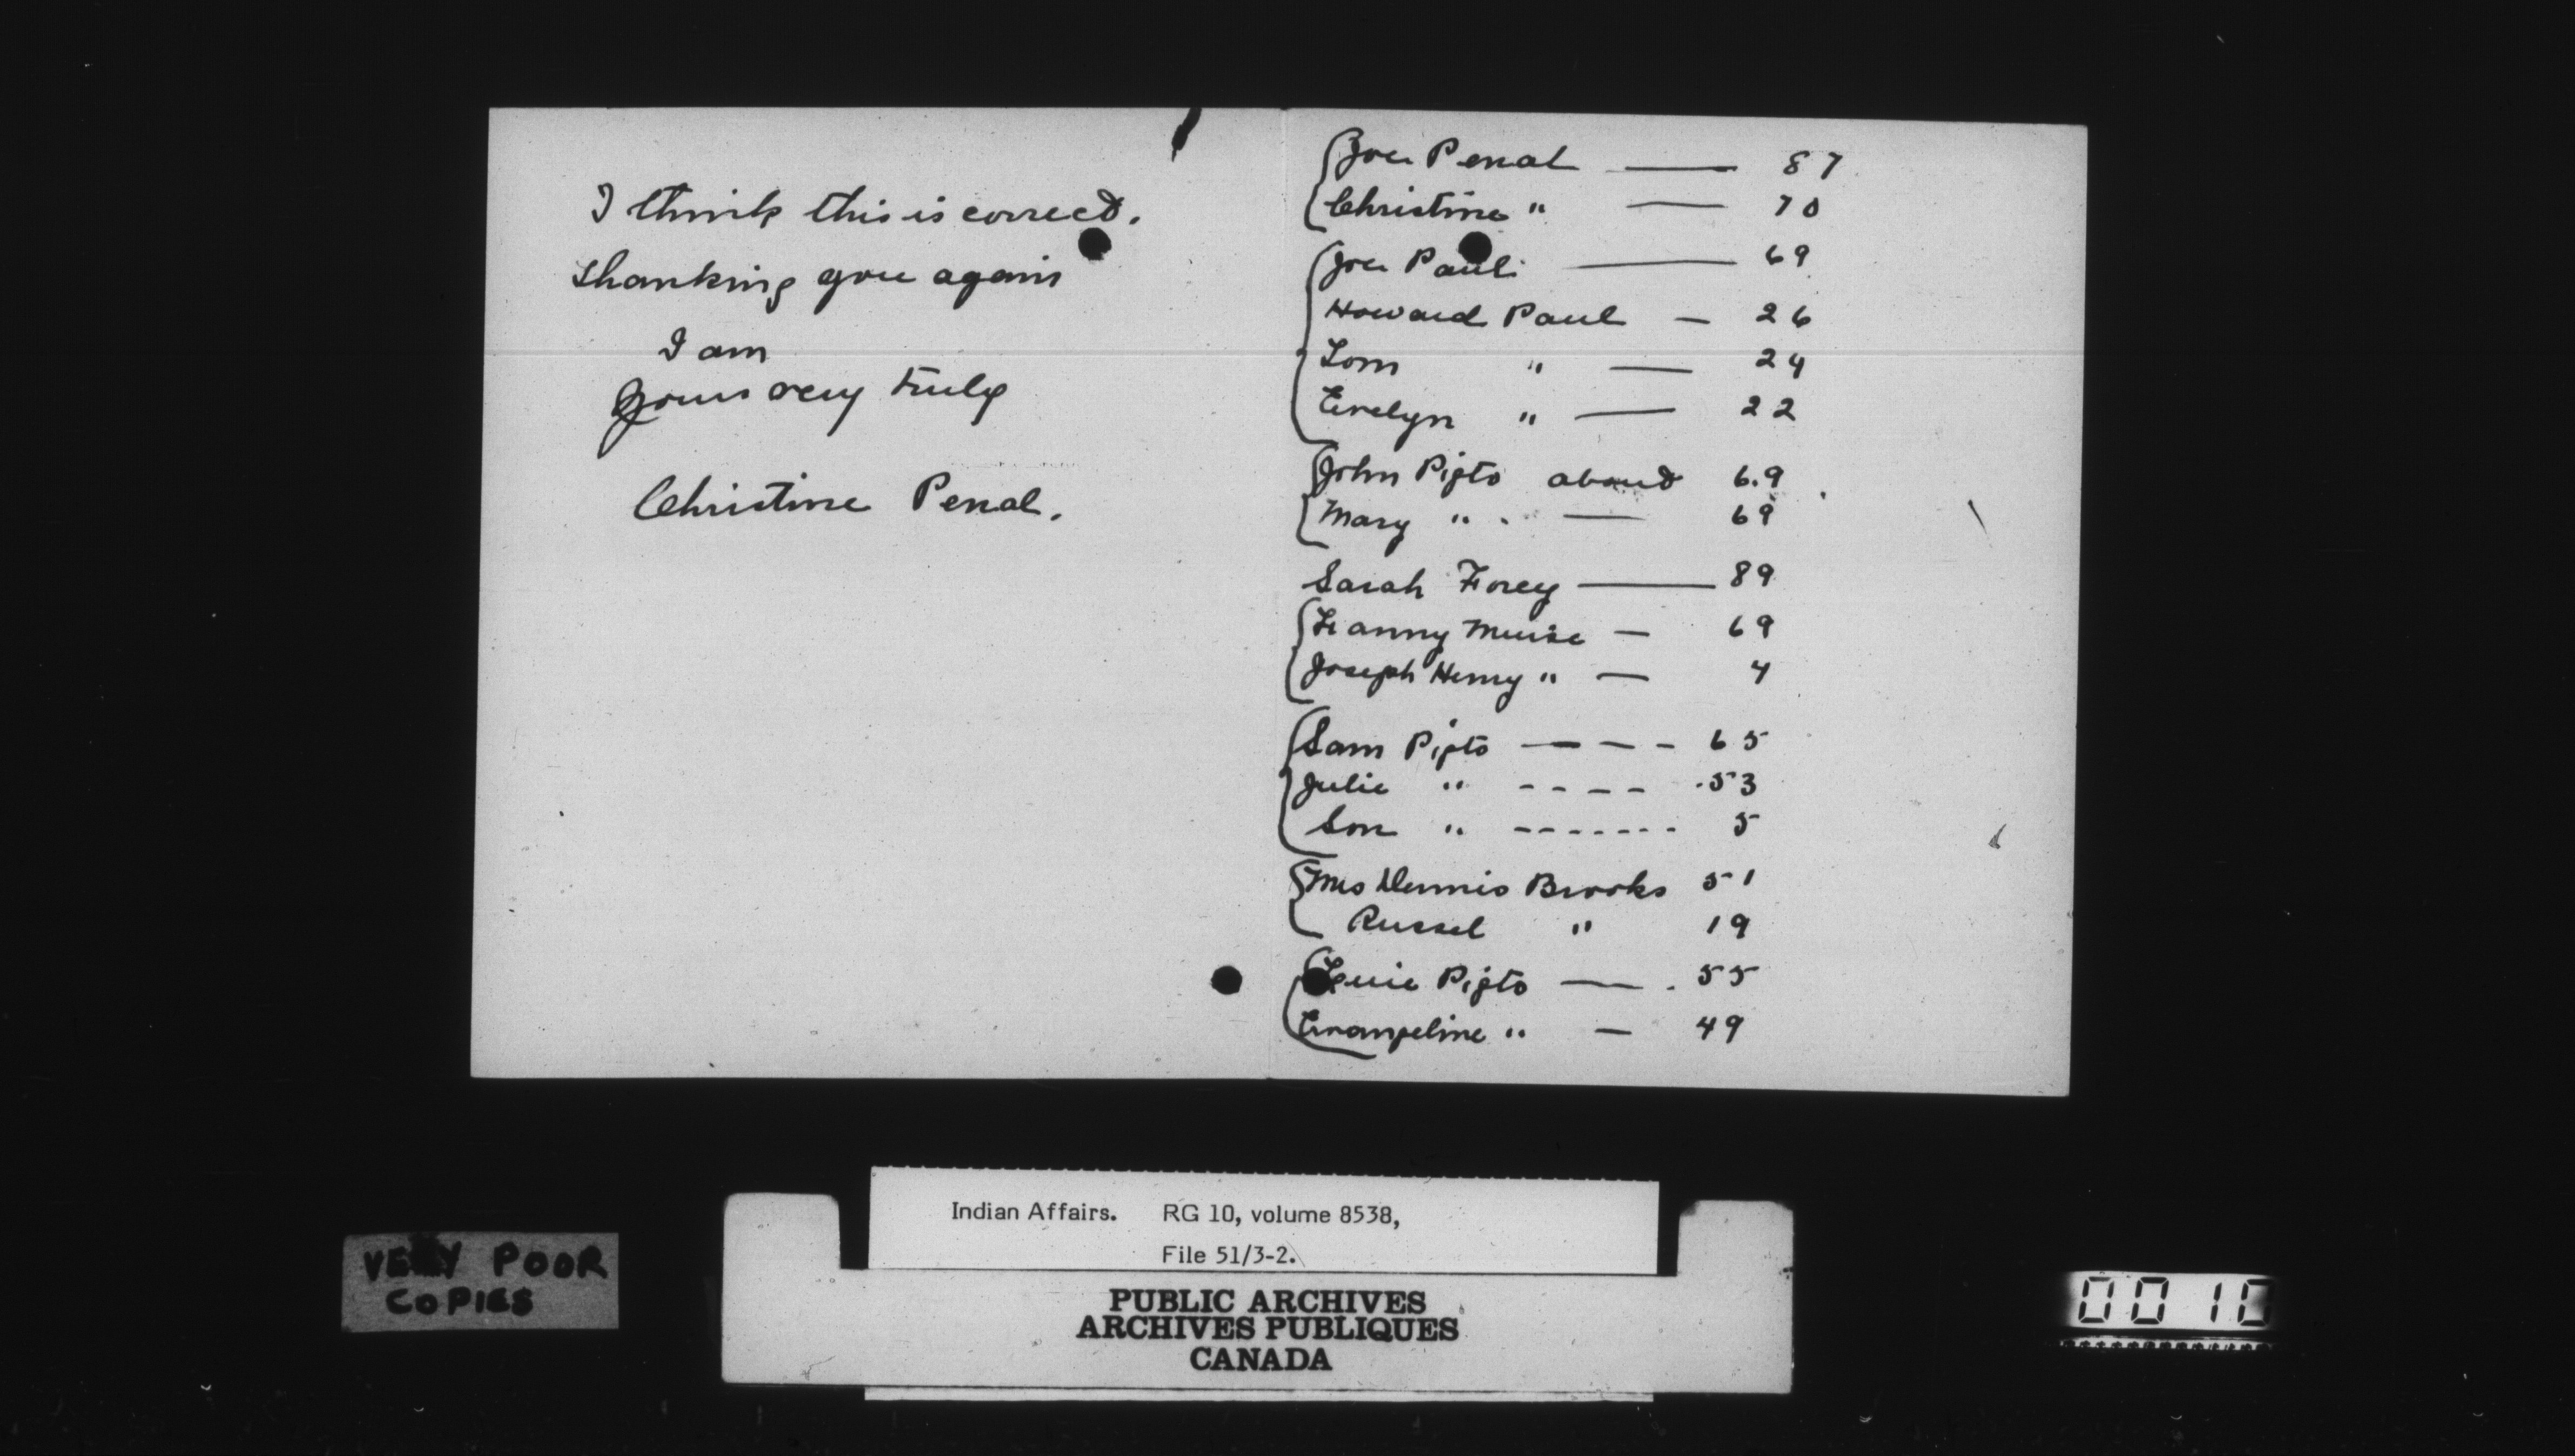 I think this is correct.
thanking you again
I am
yours very truly
Christine Penal.
Joe Penal — 87
Christine " — 70
Joe Paul — 69
Howard Paul — 26
Tom " — 24
Evelyn " — 22
John Picto about 69
Mary " — 69
Sarah Forey — 89
Fanny Muise — 69
Joseph Henry " — 4
Sam Picto — — - 65
Julie " - - - - 53
Son " - - - - - - - 5
Mrs Dennis Brooks 51
Russel " 19
Louie Picto — 55
Evangeline " — 49
Indian Affairs. RG 10, volume 8538,
File 51/3-2.
PUBLIC ARCHIVES
ARCHIVES PUBLIQUES
CANADA
VERY POOR
COPIES
0010